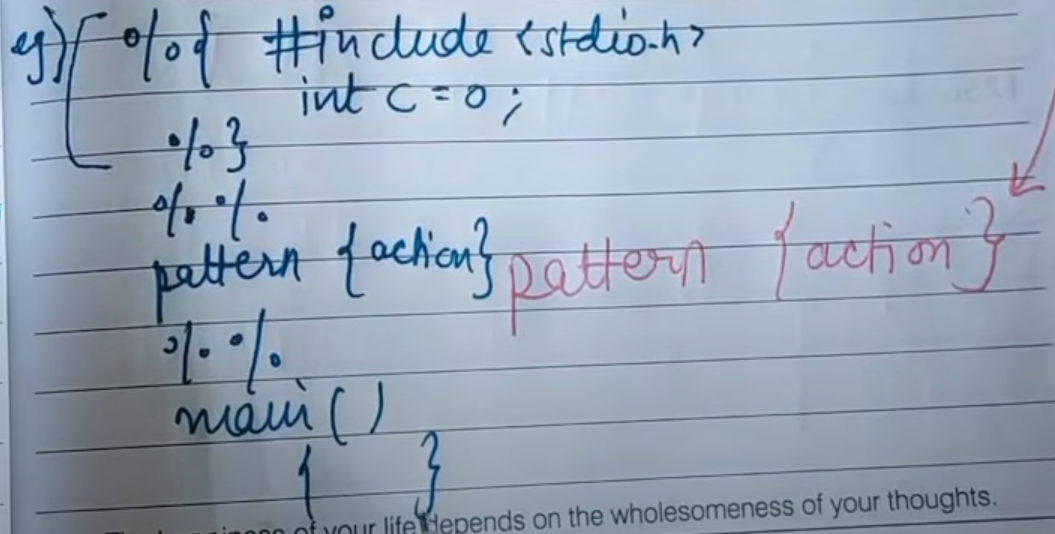 eg) %{ #include <stdio.h>
int c = 0 ;
%}
%%
pattern {action} pattern {action}
%%
main ( )
{ }
of your life depends on the wholesomeness of your thoughts.